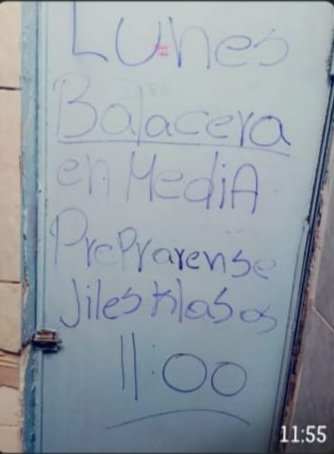 Lunes
Balacera
en MediA
PrePrarense
Jiles klasos
11:00
11:55